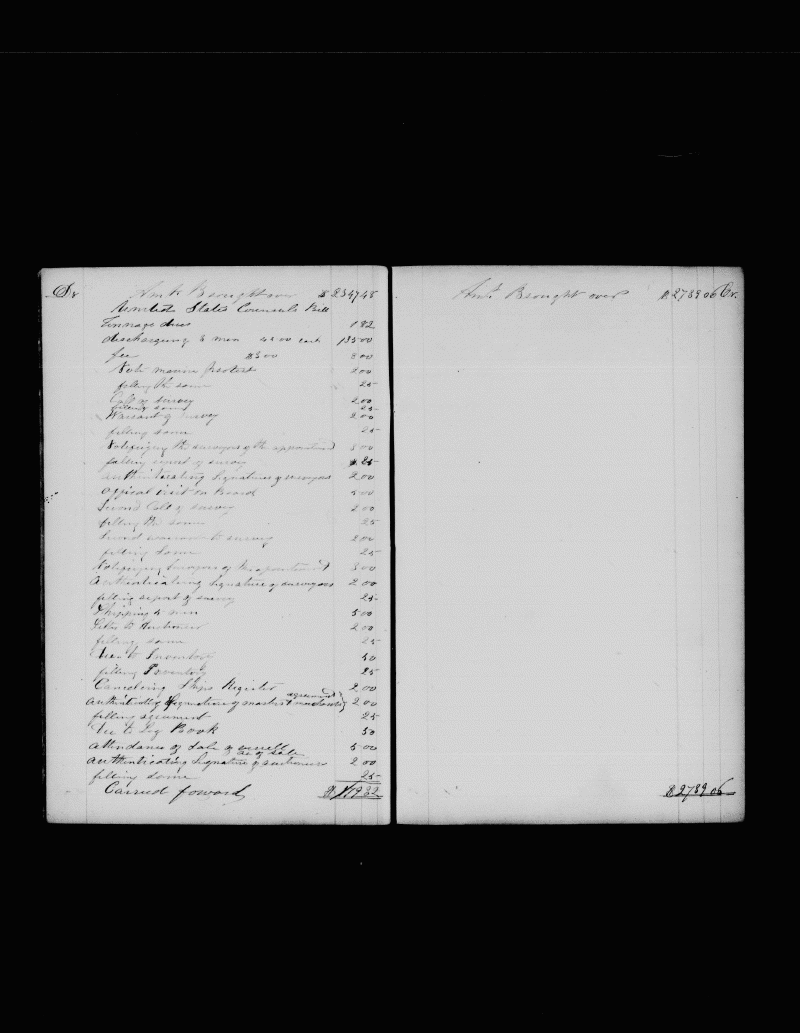 Dr Amt Brought over $ 2547 48
United States Consuls Bill
Tonnage dues 1 82
discharging 3 men 45 00 each 135 00
fee $3 00 3 00
Note marine protest 2 00
filling the same 25
Call of survey 2 00
filling same 25
Warrant of survey 2 00
filling same 25
Notifying the surveyors of the appointment 3 00
filling report of survey 25
authenticating Signatures of surveyors 2 00
official visit on Board 5 00
Second Call of survey 2 00
filling the same 25
Second warrant to survey 2 00
filling same 25
Notifying Surveyors of the appointment 3 00
Authenticating Signature of surveyors 2 00
filling report of survey 25
Shipping men 5 00
Letter to Auctioneer 2 00
filling same 25
to Inventory 50
filling Inventory 25
Canceling Ships Register 2 00
agreement
Authenticating Signature of master 2 00
filling agreement 25
to Log Book 50
attendance of Sale of vessell 5 00
of Sale
authenticating Signature of auctioneer 2 00
filling same 25
Carried forward
Amt Brought over $ 2789 06 Cr.
$ 2789 06